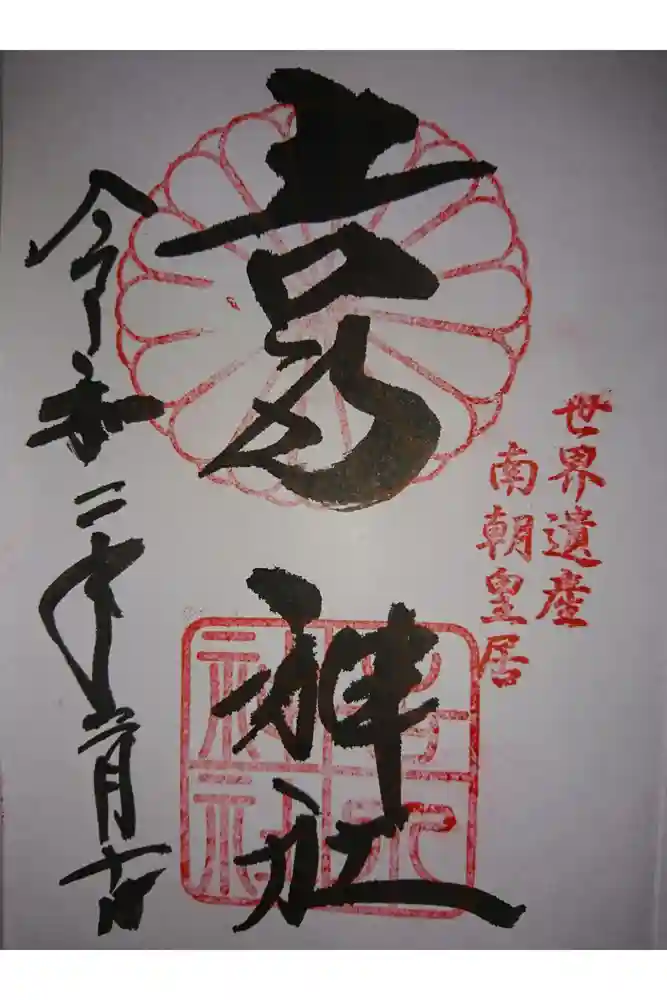 世界遺産
南朝皇居
吉水神社
吉水神社
令和二年六月